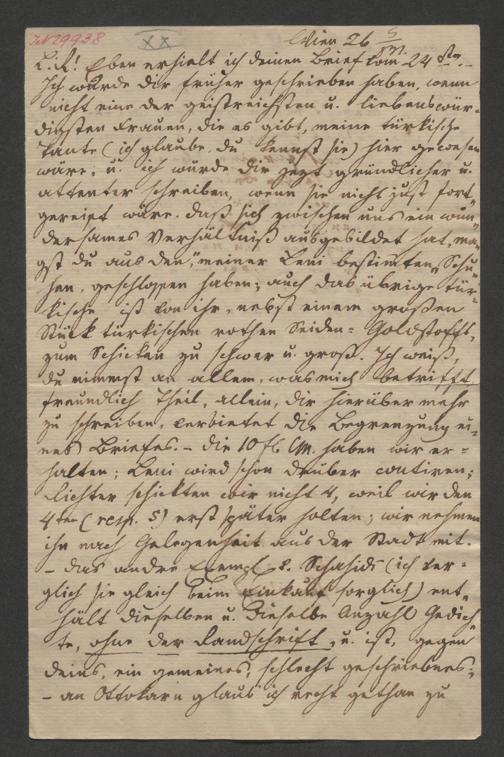 IN 29938 XX Wien 26 5/m.
L. K! Eben erhielt ich deinen Brief vom 24 sten.
Ich würde dir früher geschrieben haben, wenn
nicht eine der geistreichsten u. liebenswür-
digsten Frauen, die es gibt, meine türkische
Tante (ich glaube, du kennst sie) hier gewesen
wäre, u. ich würde dir jezt gründlicher u.
attenter schreiben, wenn sie nicht just fort
gereist wäre. Daß sich zwischen uns ein wun-
dersames Verhältniß ausgebildet hat, ma-
gst du aus den, meiner Leni bestimten Schu-
hen, geschlossen haben; auch das übrige tür-
kische ist von ihr, nebst einem großen
Stück türkischen rothen Seiden- Goldstoffs,
zum Schicken zu schwer u. groß. Ich weiß,
du nimmst an allem, was mich betrifft
freundlich Theil, allein, dir hierüber mehr
zu schreiben, verbietet die Begrenzung ei-
nes Briefes. – die 10 fl CM. haben wir er-
halten; Leni wird schon drüber contiren;
Lichter schickten wir nicht 4, weil wir den
4ten (resp. 5) erst später holten; wir nehmen
ihn nach Gelegenheit aus der Stadt mit.
– das andre Exempl. v. Schahidi (ich ver-
glich sie gleich beim Einkauf sorglich) ent-
hält dieselben u. dieselbe Anzahl Gedich
te, ohne der Randschrift, u. ist, gegen
deins, ein gemeines, schlecht geschriebenes;
– an Ottokarn glaub ich recht gethan zu